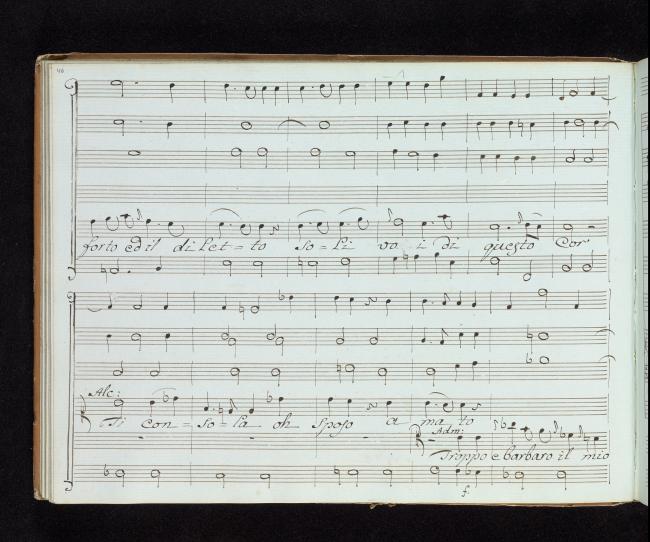 46
forto ed il dilet=to so=li vo i di questo Cor
Alc:
Ti con=so=la oh sposo a ma to
Adm:
Troppo e barbaro il mio
f.